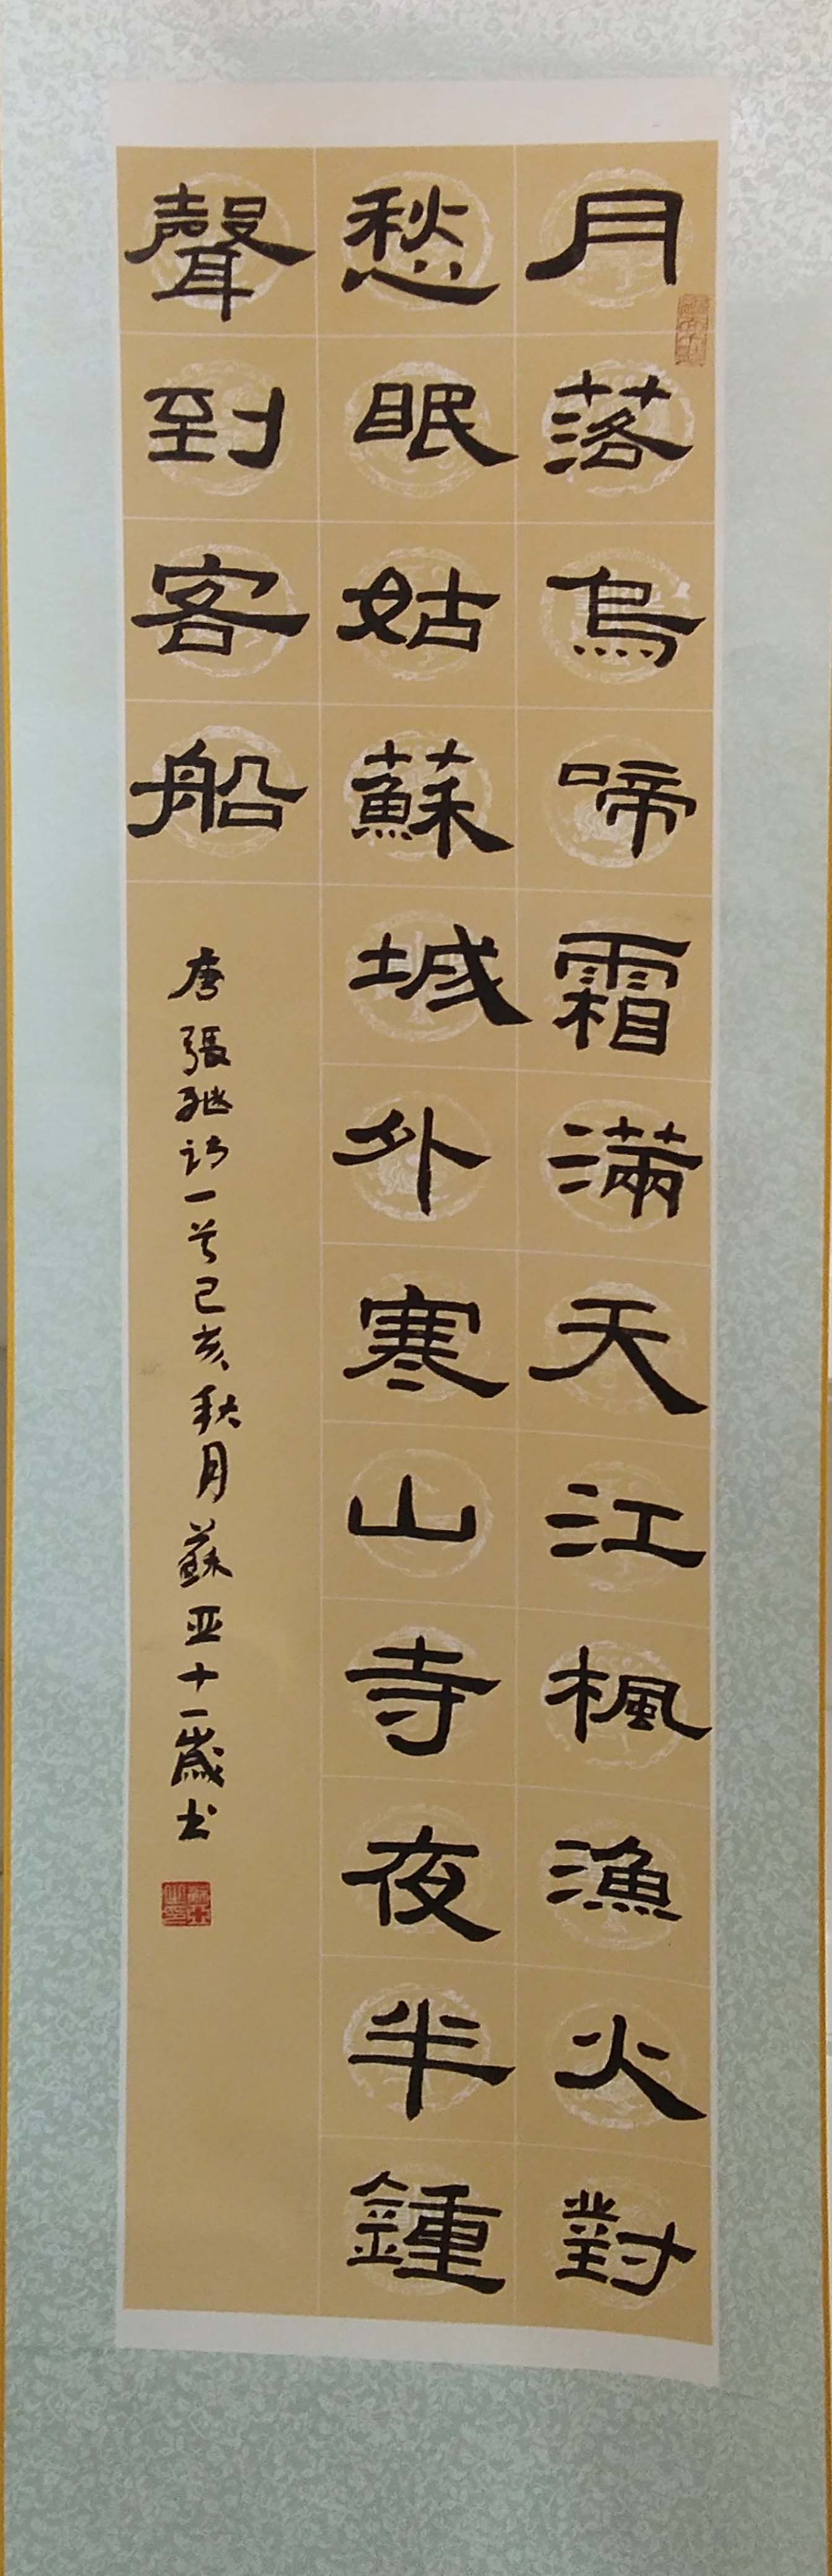 月落烏啼霜滿天江楓漁火對
愁眠姑蘇城外寒山寺夜半鍾
聲到客船
唐張继詩一首己亥秋月蘇亚十一歲书